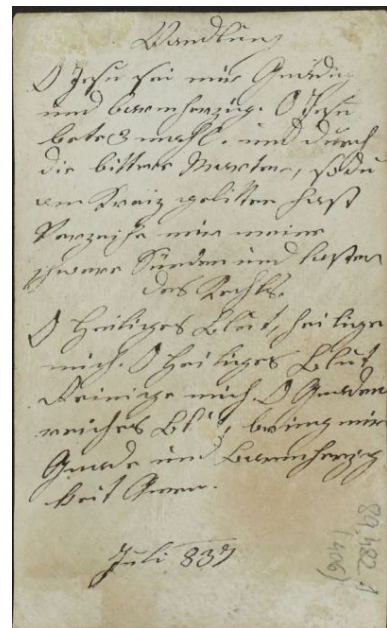 Wandlung
O Jesu sei mir Gnädig
und barmherzig. O Jesu
bete 3 mahl. und durch
die bittere Marter, so du
am Kreiz gelitten hast
Verzeihe mir meine
schwere Sünden und
des
O Heiliges Blut, heilige
mich. O Heiliges Blut
Reinige mich. O Gnaden
reiches Blut, bring mir
Gnade und Barmherzig
keit
Juli 839
89.482.1
(406)